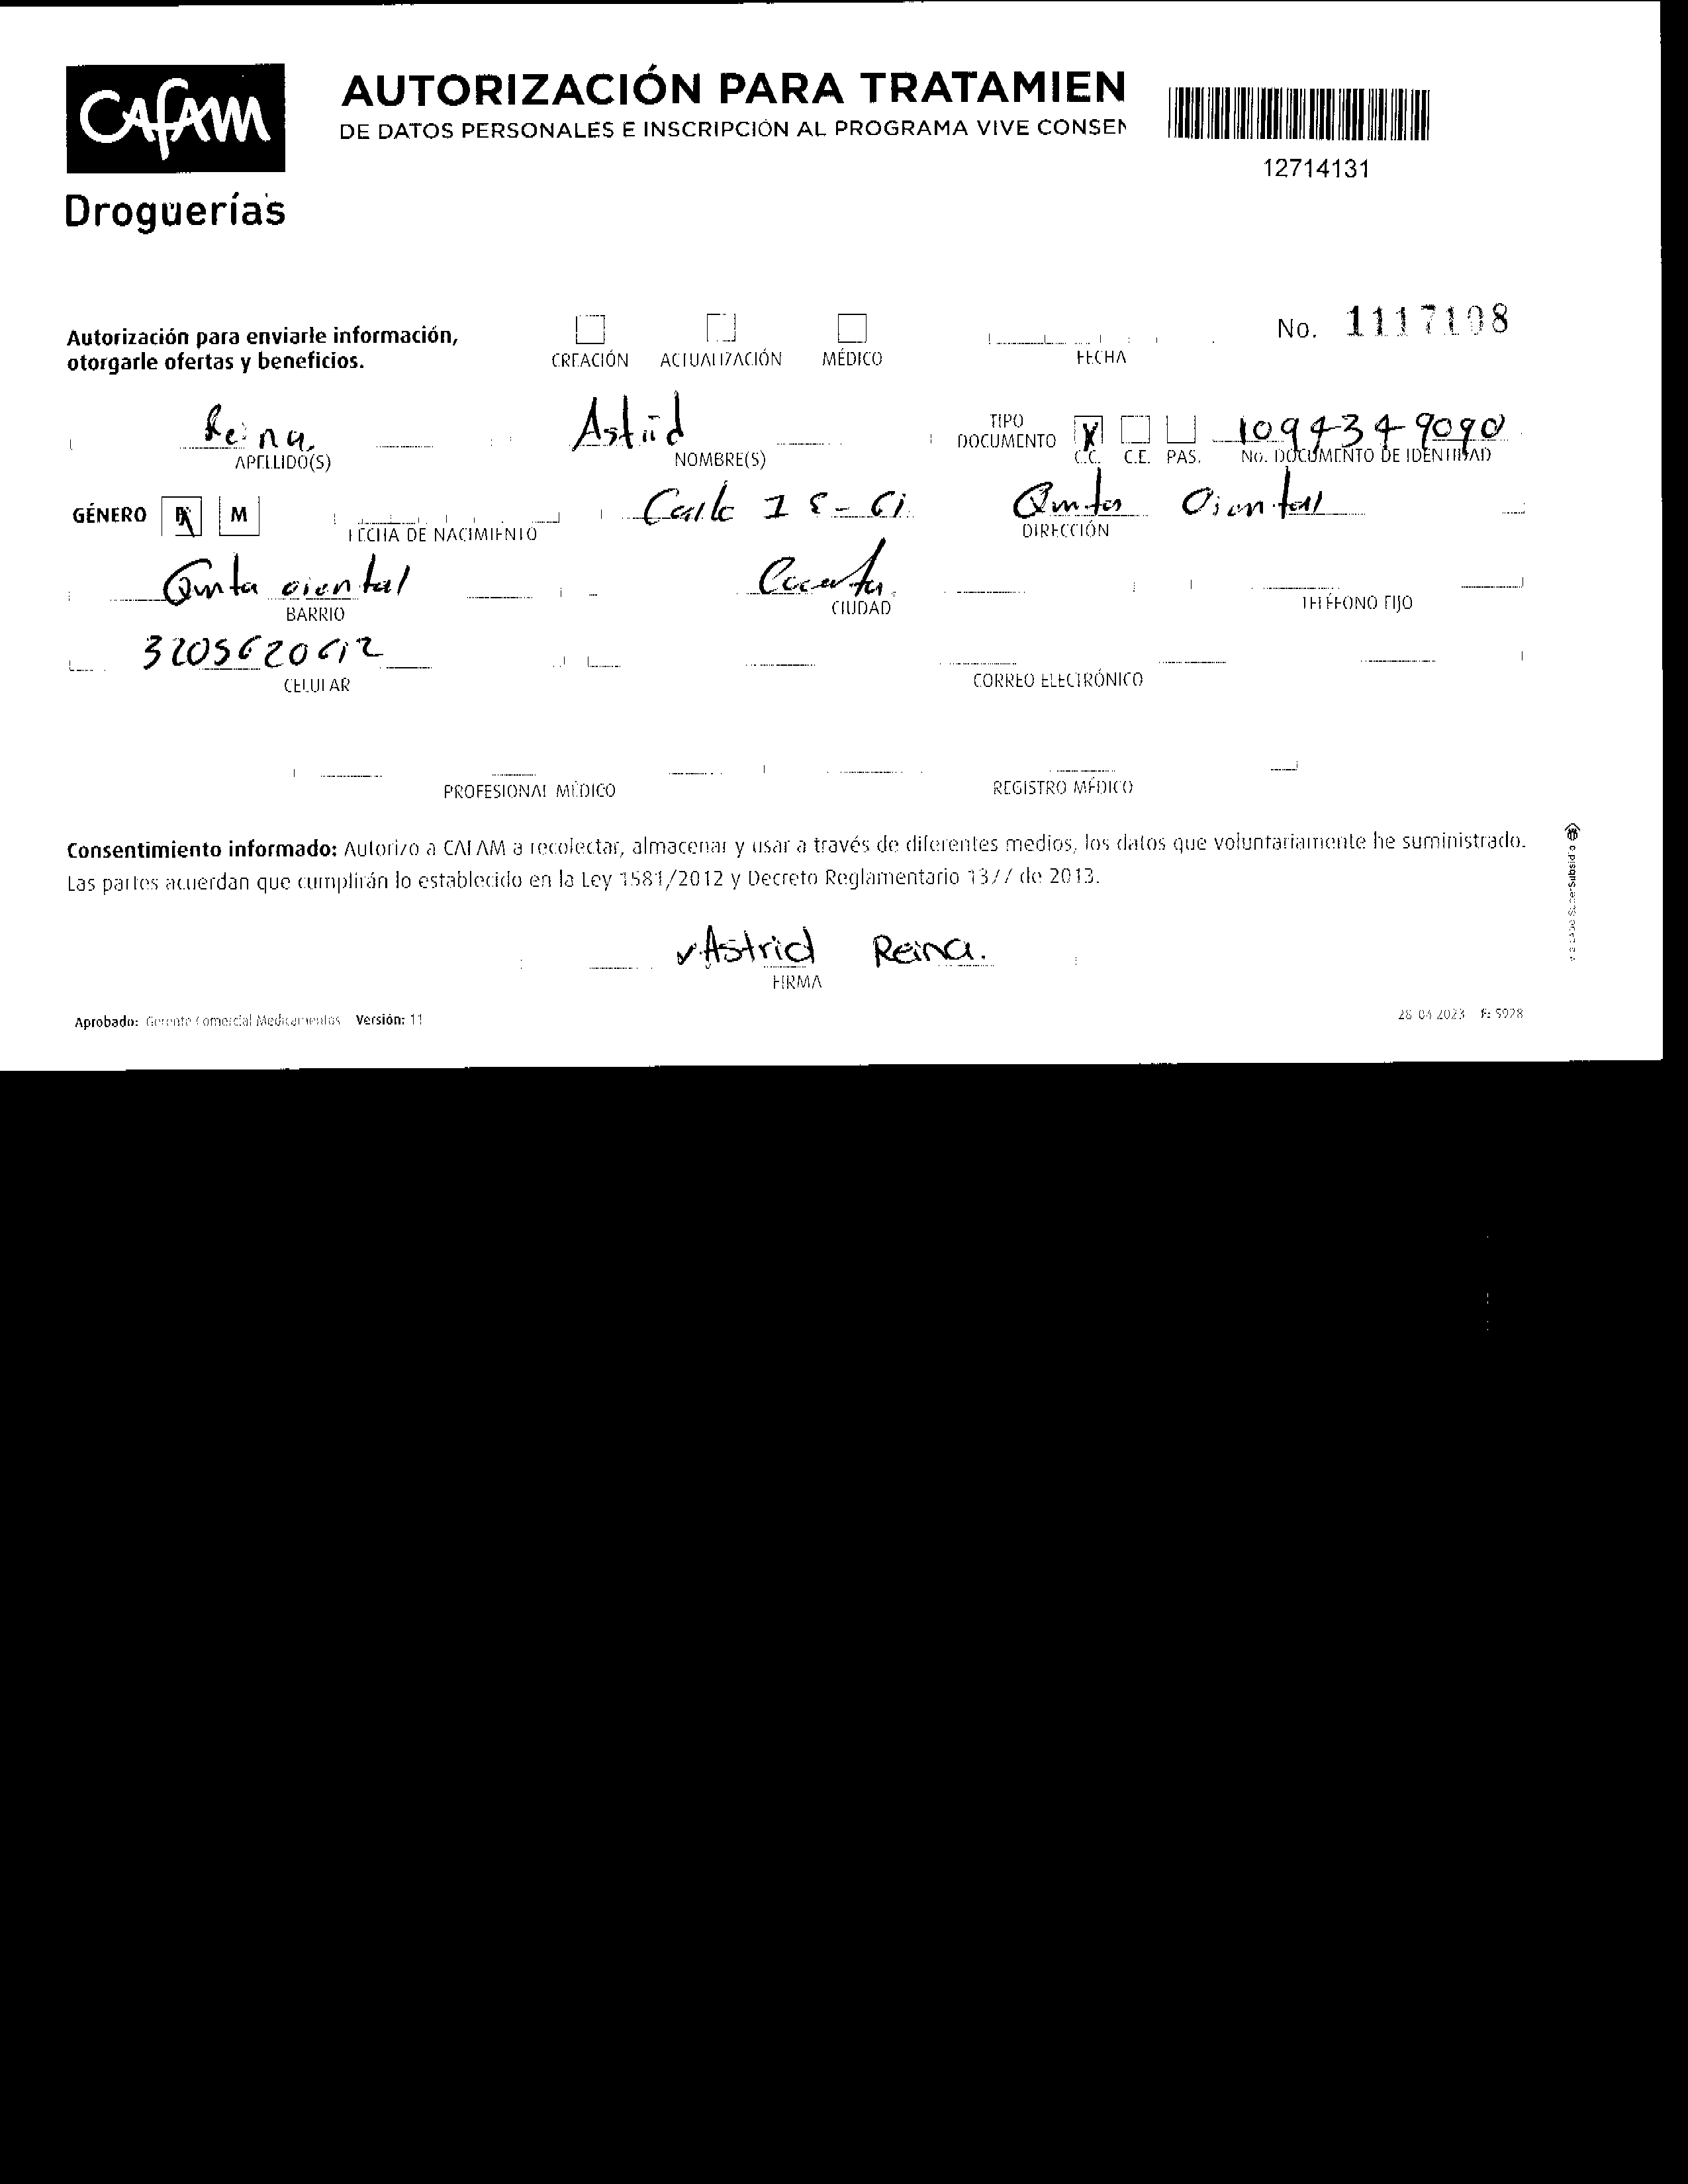 CAFAM
Droguerías
AUTORIZACIÓN PARA TRATAMIEN
DE DATOS PERSONALES E INSCRIPCIÓN AL PROGRAMA VIVE CONSEN
12714131
Autorización para enviarle información,
otorgarle ofertas y beneficios.
CREACIÓN ACTUALIZACIÓN MÉDICO
FECHA
No. 1117108
Reina
APELLIDO(S)
Astrid
NOMBRE(S)
TIPO
DOCUMENTO
X
C.C. C.E. PAS.
1094349090
No. DOCUMENTO DE IDENTIDAD
GÉNERO F M
FECHA DE NACIMIENTO
Calle Oriental
DIRECCIÓN
Quinta oriental
BARRIO
Cucuta
CIUDAD
TELÉFONO FIJO
3205620612
CELULAR
CORREO ELECTRÓNICO
PROFESIONAL MÉDICO
REGISTRO MÉDICO
Consentimiento informado: Autorizo a CAFAM a recolectar, almacenar y usar a través de diferentes medios, los datos que voluntariamente he suministrado.
Las partes acuerdan que cumplirán lo establecido en la Ley 1581/2012 y Decreto Reglamentario 1377 de 2013.
Astrid Reina.
FIRMA
Aprobado: Gerente Comercial Medicamentos Versión: 11
28 04 2023 F: 5928
SuperSubsidio